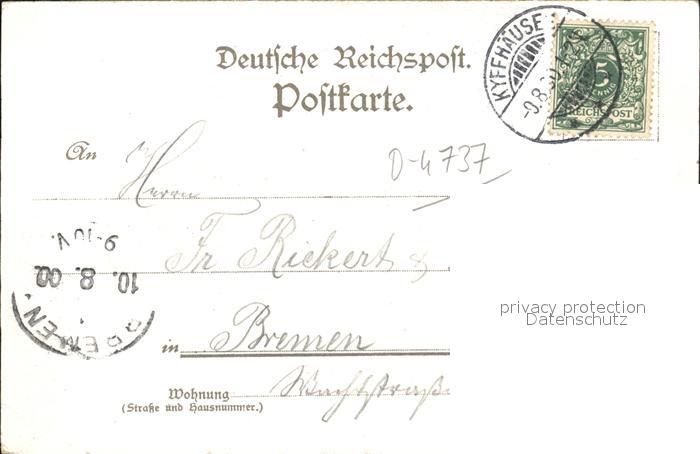 Deutsche Reichspost.
Postkarte.
KYFFHÄUSER
-9.8.
5
PFENNIG
REICHSPOST
D-4737
An Herrn
Fr Rickert &
in Bremen
Wachtstraße
Wohnung
(Straße und Hausnummer.)
BREMEN.
10. 8. 00.
9-10V.
privacy protection
Datenschutz